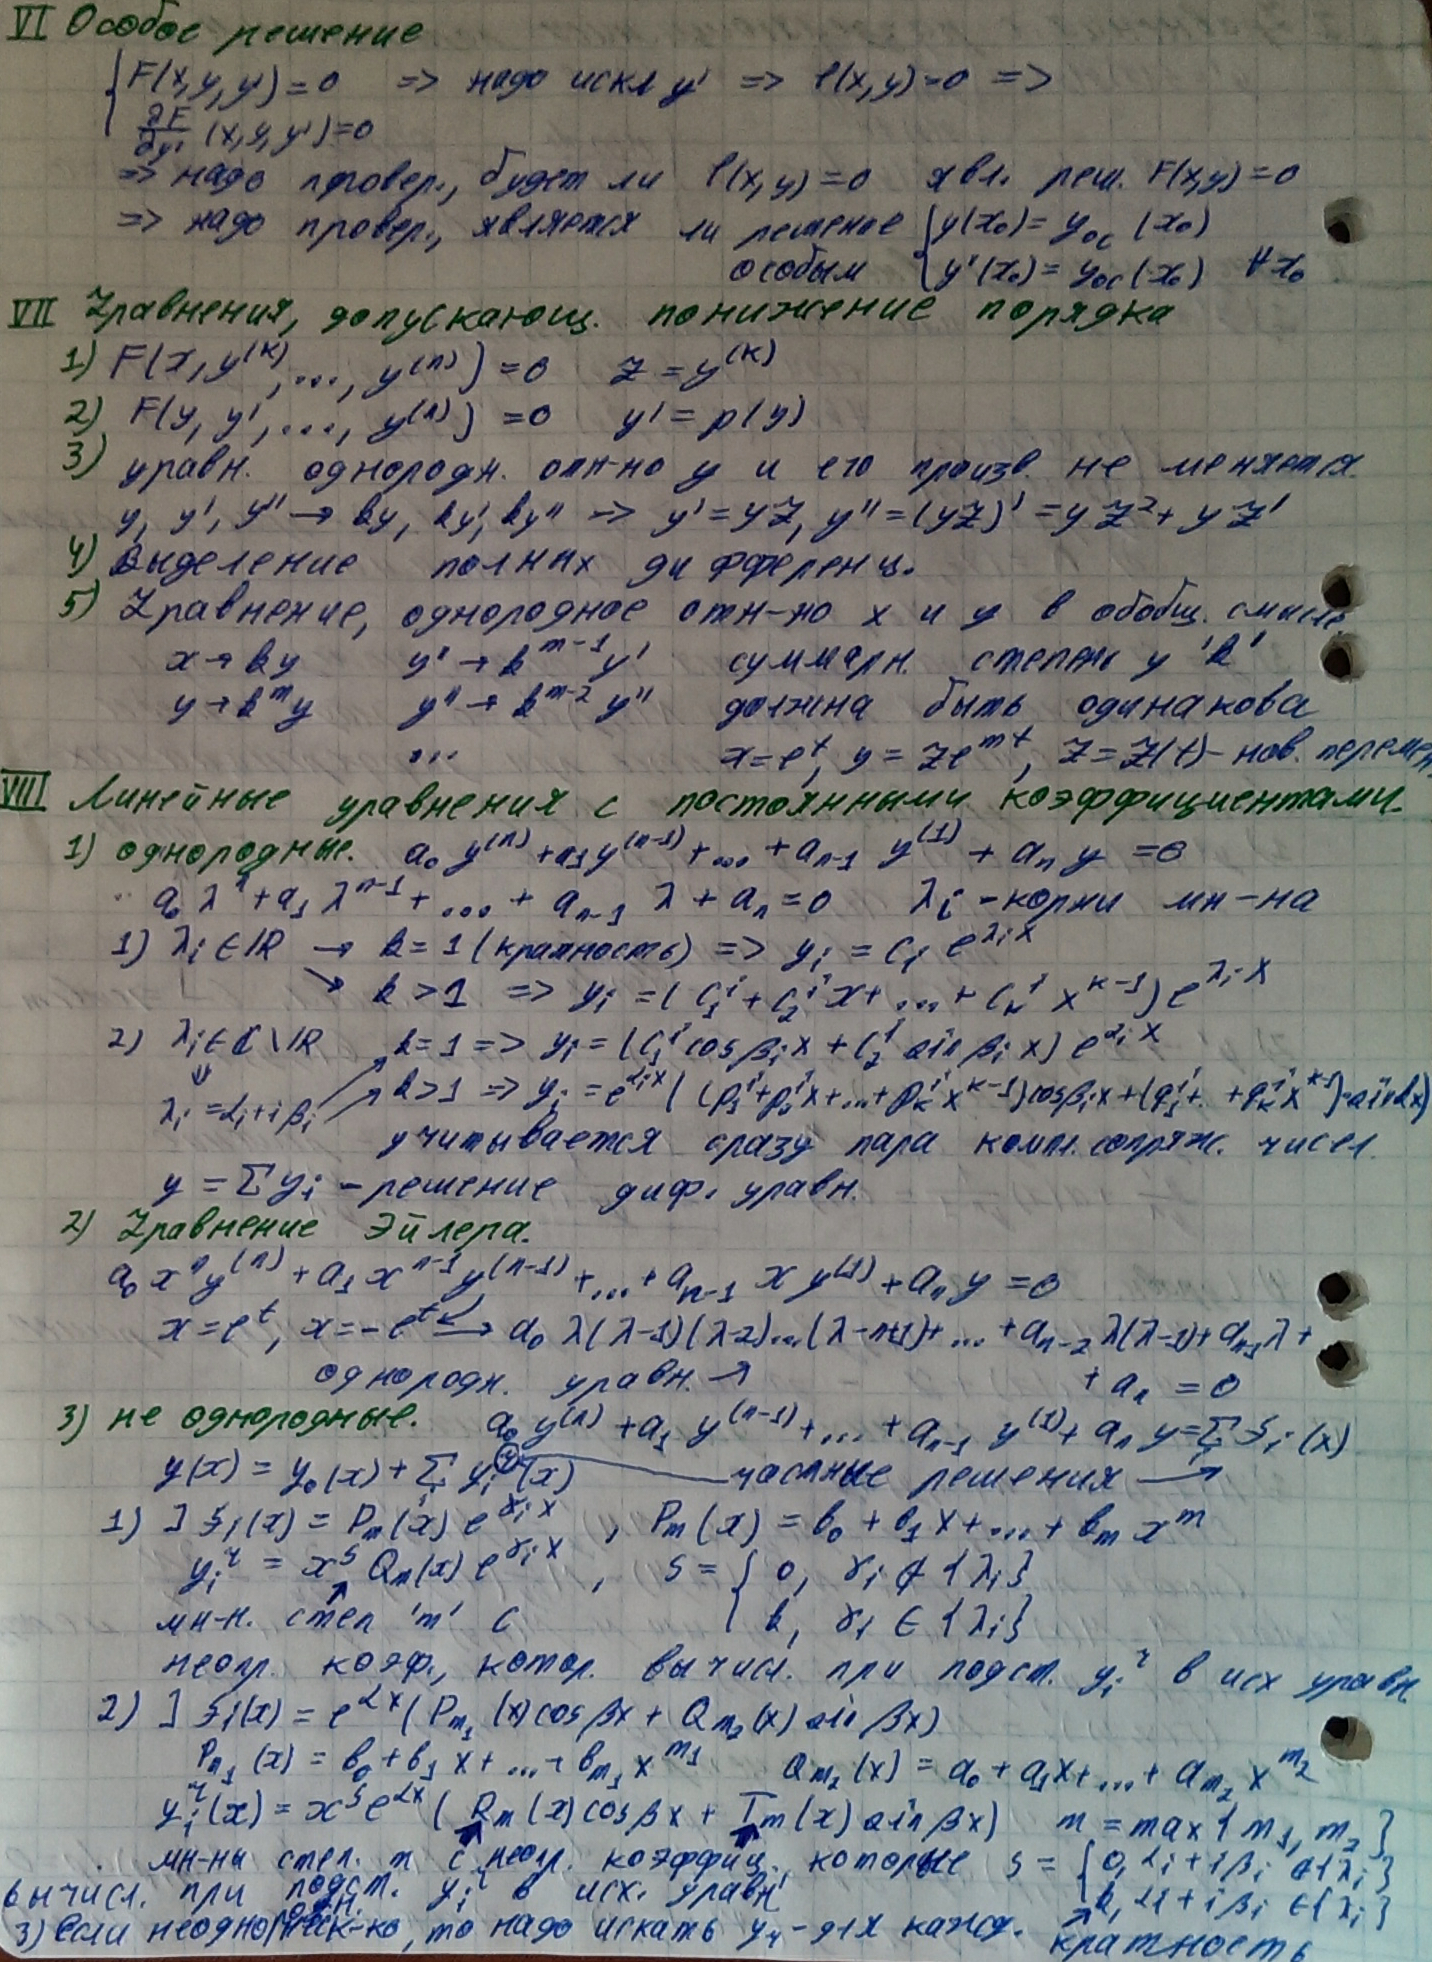 VI Особое решение
{ F(x,y,y')=0 => надо искл y' => φ(x,y)=0 =>
∂F/∂y' (x,y,y')=0
=> надо провер., будет ли φ(x,y)=0 явл. реш. F(x,y)=0
=> надо провер., является ли решение { y(x₀)=yос(x₀)
особым y'(x₀)=yос(x₀) ∀x₀
VII Уравнения, допускающ. понижение порядка
1) F(x,y⁽ᵏ⁾,...,y⁽ⁿ⁾)=0 z=y⁽ᵏ⁾
2) F(y,y',...,y⁽ⁿ⁾)=0 y'=p(y)
3) уравн. однородн. отн-но y и его произв. не меняется
y, y', y'' → ky, ky', ky'' => y'=yz, y''=(yz)'=yz²+yz'
4) Выделение полных дифференц.
5) Уравнение, однородное отн-но x и y в обобщ. смысле
x→ky y'→k^(m-1) y' суммарн. степень у 'k'
y→k^m y y''→k^(m-2) y'' должна быть одинакова
... x=e^t, y=ze^(mt), z=z(t) - нов. перемен.
VIII Линейные уравнения с постоянными коэффициентами.
1) однородные. a₀y⁽ⁿ⁾+a₁y⁽ⁿ⁻¹⁾+...+aₙ₋₁y⁽¹⁾+aₙy=0
a₀λⁿ+a₁λⁿ⁻¹+...+aₙ₋₁λ+aₙ=0 λᵢ - корни мн-на
1) λᵢ∈ℝ → k=1 (кратность) => yᵢ=cᵢe^(λᵢx)
↘ k>1 => yᵢ=(c₁ⁱ+c₂ⁱx+...+cₖⁱx^(k-1))e^(λᵢx)
2) λᵢ∈ℂ\ℝ k=1 => yᵢ=(c₁ⁱcosβᵢx+c₂ⁱsinβᵢx)e^(αᵢx)
⇓ λᵢ=αᵢ+iβᵢ k>1 => yᵢ=e^(αᵢx)((p₁ⁱ+p₂ⁱx+...+pₖⁱx^(k-1))cosβᵢx+(q₁ⁱ+..+qₖⁱx^(k-1))·sinβᵢx)
учитывается сразу пара компл. сопряж. чисел.
y=Σyᵢ - решение диф. уравн.
2) Уравнение Эйлера.
a₀xⁿy⁽ⁿ⁾+a₁xⁿ⁻¹y⁽ⁿ⁻¹⁾+...+aₙ₋₁xy⁽¹⁾+aₙy=0
x=e^t, x=-e^t → a₀λ(λ-1)(λ-2)...(λ-n+1)+...+aₙ₋₂λ(λ-1)+aₙ₋₁λ+
однородн. уравн. ↗ +aₙ=0
3) не однородные. a₀y⁽ⁿ⁾+a₁y⁽ⁿ⁻¹⁾+...+aₙ₋₁y⁽¹⁾+aₙy=Σᵢfᵢ(x)
y(x)=y₀(x)+Σᵢyᵢ^ч(x) частные решения →
1) ] fᵢ(x)=Pₘ(x)e^(γᵢx), Pₘ(x)=b₀+b₁x+...+bₘx^m
yᵢ^ч=x^s Qₘ(x)e^(γᵢx), s={ 0, γᵢ∉{λᵢ}
мн-н. степ 'm' с k, γᵢ∈{λᵢ}
неопр. коэф., котор. вычисл. при подст. yᵢ^ч в исх уравн.
2) ] fᵢ(x)=e^(αx)(Pₘ₁(x)cosβx+Qₘ₂(x)sinβx)
Pₘ₁(x)=b₀+b₁x+...+bₘ₁x^m₁ Qₘ₂(x)=a₀+a₁x+...+aₘ₂x^m₂
yᵢ^ч(x)=x^s e^(αx)(Rₘ(x)cosβx+Tₘ(x)sinβx) m=max{m₁,m₂}
мн-ны степ. m с неопр. коэффиц., которые s={ 0, αᵢ+iβᵢ∉{λᵢ}
вычисл. при подст. yᵢ^ч в исх. уравн k, αᵢ+iβᵢ∈{λᵢ}
3) если неоднородн. неск-ко, то надо искать yч - для кажд. кратность